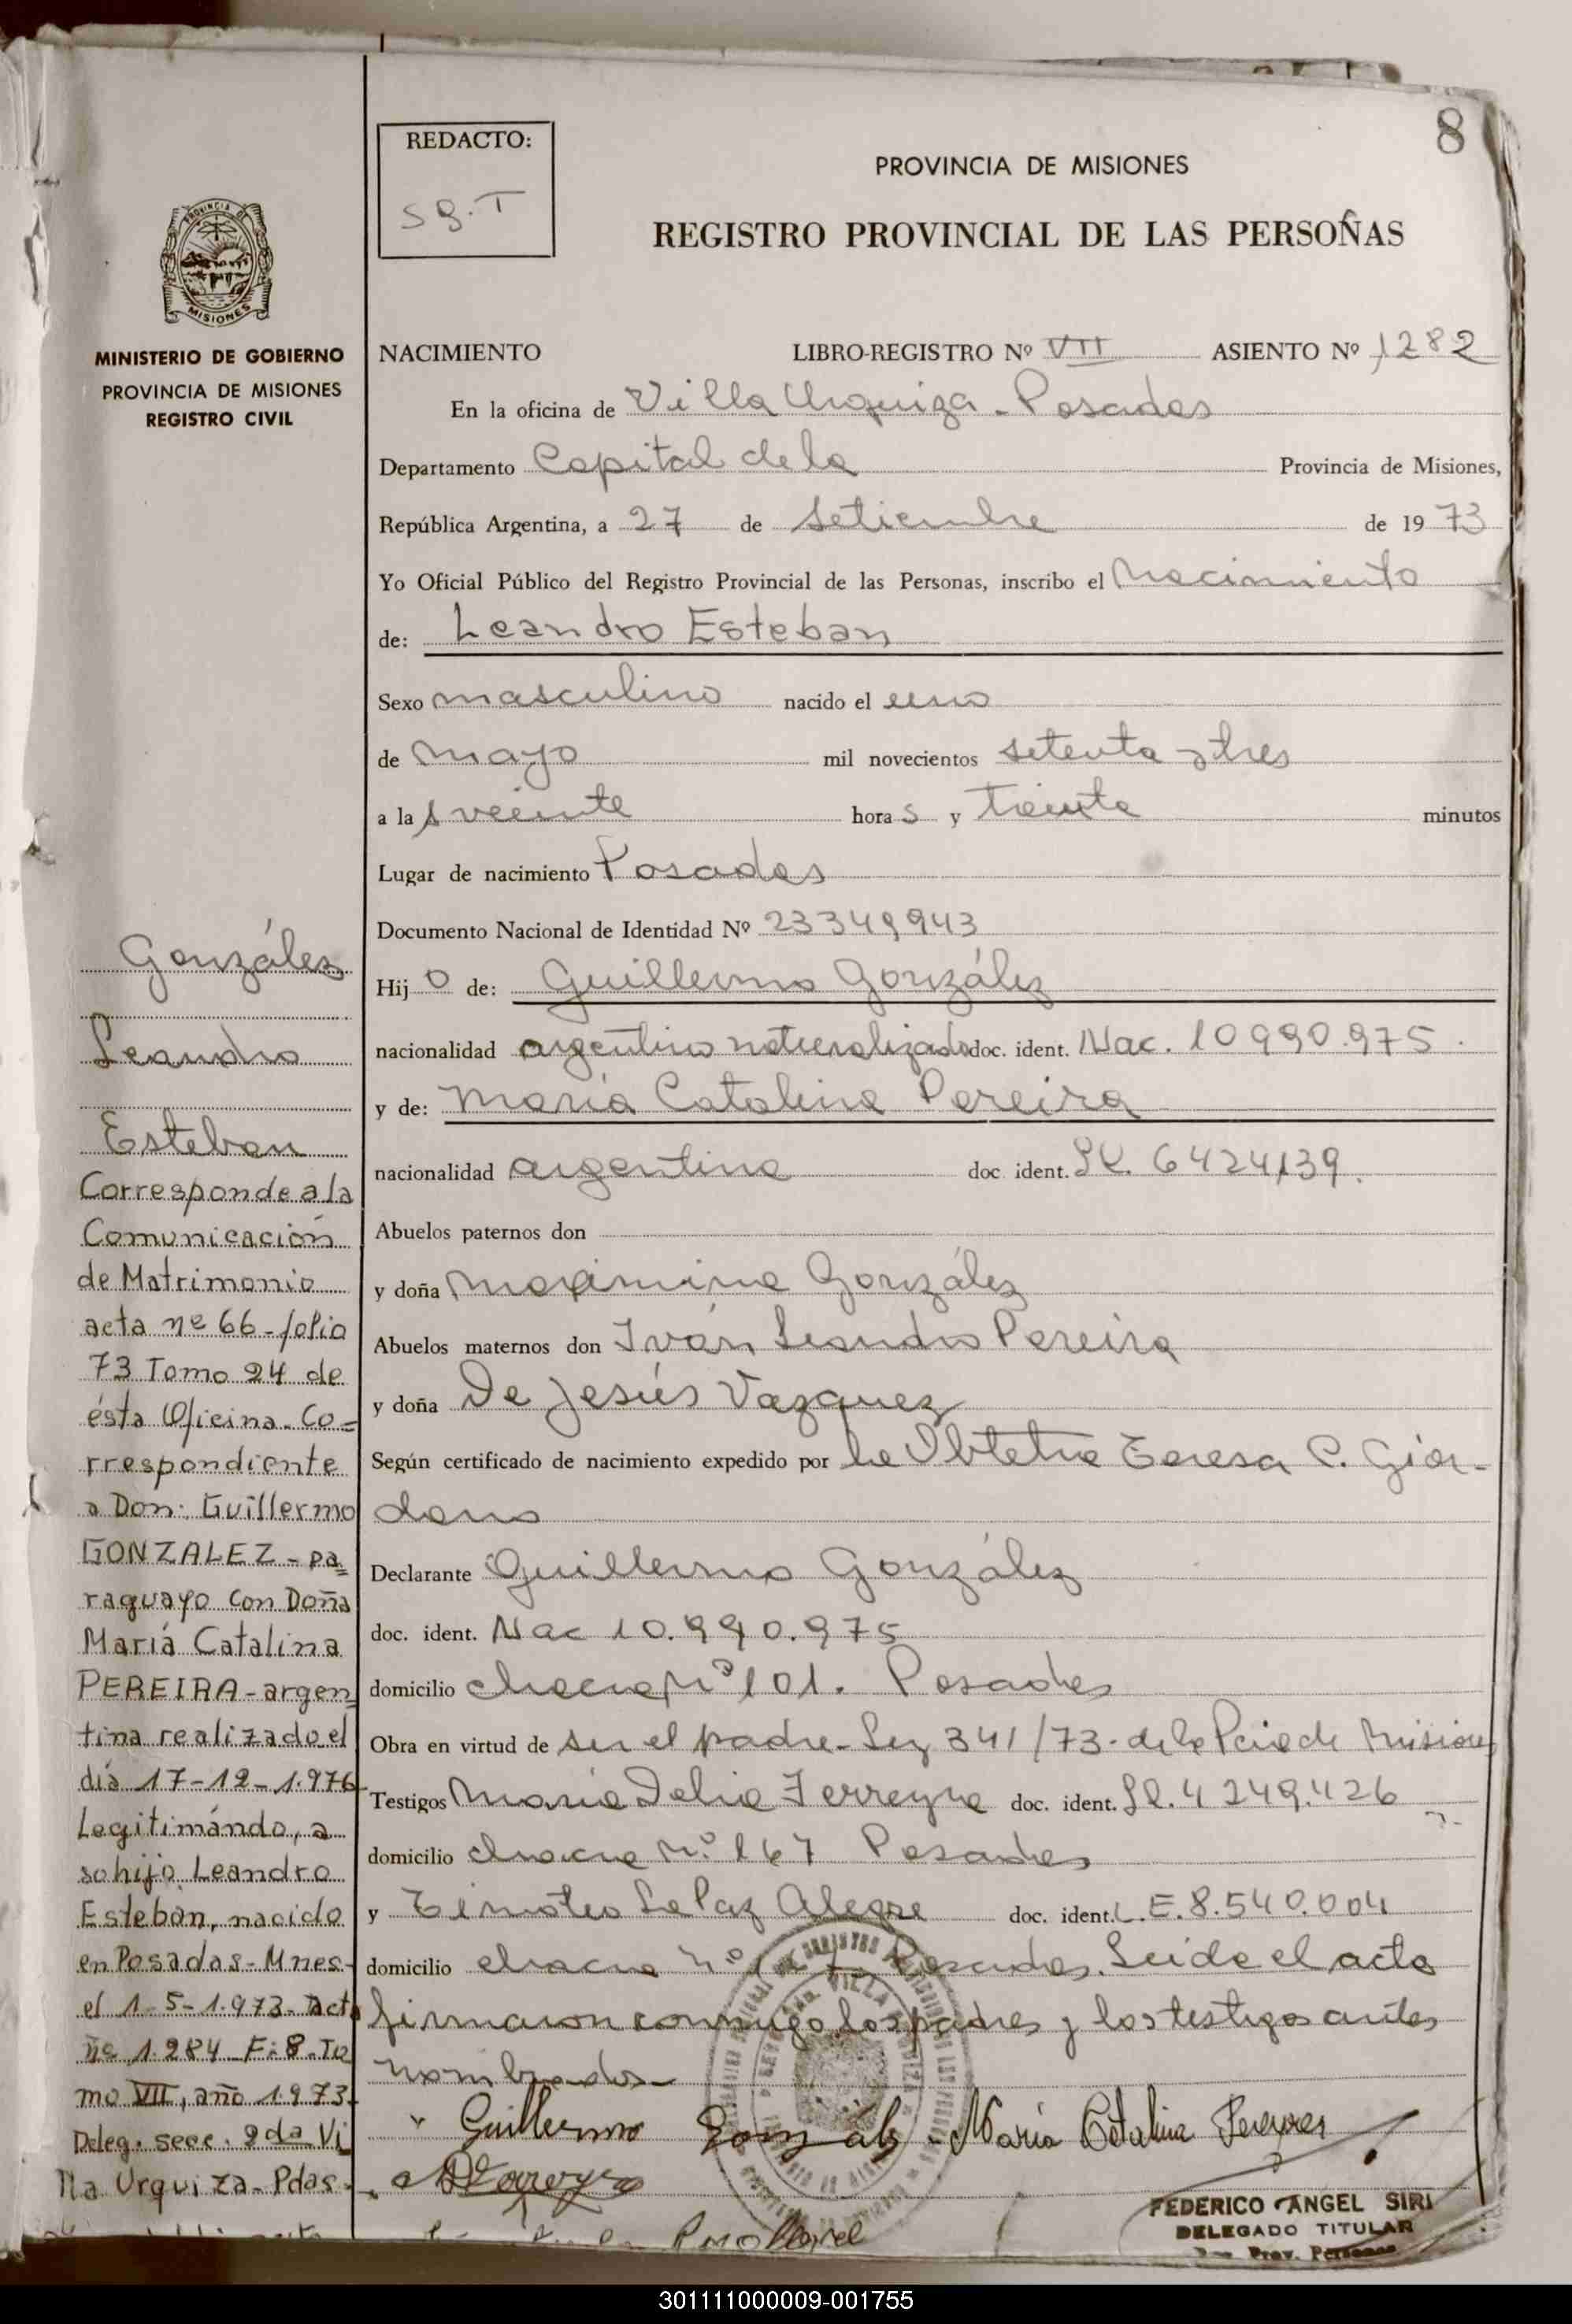 8
REDACTO:
SG.T
PROVINCIA DE MISIONES
REGISTRO PROVINCIAL DE LAS PERSOÑAS
PROVINCIA DE
MISIONES
MINISTERIO DE GOBIERNO
PROVINCIA DE MISIONES
REGISTRO CIVIL
NACIMIENTO LIBRO-REGISTRO Nº VII ASIENTO Nº 1282
En la oficina de Villa Urquiza - Posadas
Departamento Capital de la Provincia de Misiones,
República Argentina, a 27 de setiembre de 1973
Yo Oficial Público del Registro Provincial de las Personas, inscribo el nacimiento
de: Leandro Esteban
Sexo masculino nacido el uno
de mayo mil novecientos setenta y tres
a las veinte horas y treinta minutos
Lugar de nacimiento Posadas
Documento Nacional de Identidad Nº 23349943
Hijo de: Guillermo González
nacionalidad argentino naturalizado doc. ident. Nac. 10990.975.
y de: María Catalina Pereira
nacionalidad argentina doc. ident. 6424139.
Abuelos paternos don
y doña Maximina González
Abuelos maternos don Iván Leandro Pereira
y doña De Jesús Vazquez
Según certificado de nacimiento expedido por la Obtetra Teresa C. Gior-
dano
Declarante Guillermo González
doc. ident. Nac 10.990.975
domicilio chacra nº 101. Posadas
Obra en virtud de ser el padre - Ley 341/73 - de la Pcia de Misiones
Testigos María Delia Ferreyra doc. ident. 4249.426
domicilio chacra N.º 167 Posadas
y Timoteo La Paz Alegre doc. ident. L.E. 8.540.004
domicilio chacra nº Posadas. Leida el acta
firmaron conmigo los padres y los testigos antes
nombrados -
Guillermo González - María Catalina
FEDERICO ANGEL SIRI
DELEGADO TITULAR
Prov. Personas
González
Leandro
Esteban
Corresponde a la
Comunicación
de Matrimonio
acta nº 66 - folio
73 Tomo 24 de
ésta Oficina. Co=
rrespondiente
a Don: Guillermo
GONZALEZ - pa=
raguayo con Doña
María Catalina
PEREIRA - argen=
tina realizado el
día 17-12-1.976
Legitimándo, a
so hijo Leandro
Esteban, nacido
en Posadas - Mnes-
el 1-5-1.973. Acta
nº 1.284 F: 8. To
mo VII, año 1.973.
Deleg. secc. 2da Vi
lla Urquiza - Pdas.
301111000009-001755